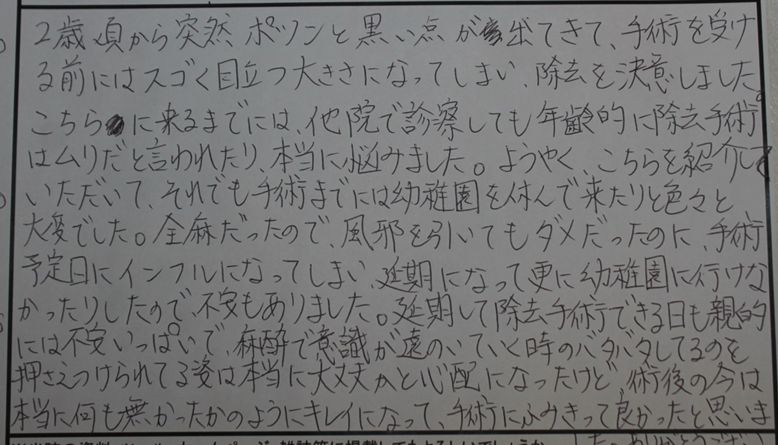 2歳頃から突然、ポツンと黒い点が出てきて、手術を受け
る前にはスゴく目立つ大きさになってしまい、除去を決意しました。
こちらに来るまでには、他院で診察しても年齢的に除去手術
はムリだと言われたり、本当に悩みました。ようやく、こちらを紹介して
いただいて、それでも手術までには幼稚園を休んで来たりと色々と
大変でした。全麻だったので、風邪を引いてもダメだったのに、手術
予定日にインフルになってしまい、延期になって更に幼稚園に行けな
かったりしたので、不安もありました。延期して除去手術できる日も親的
には不安いっぱいで、麻酔で意識が遠のいていく時のバタバタしてるのを
押さえつけられてる姿は本当に大丈夫かと心配になったけど、術後の今は
本当に何も無かったかのようにキレイになって、手術にふみきって良かったと思いま